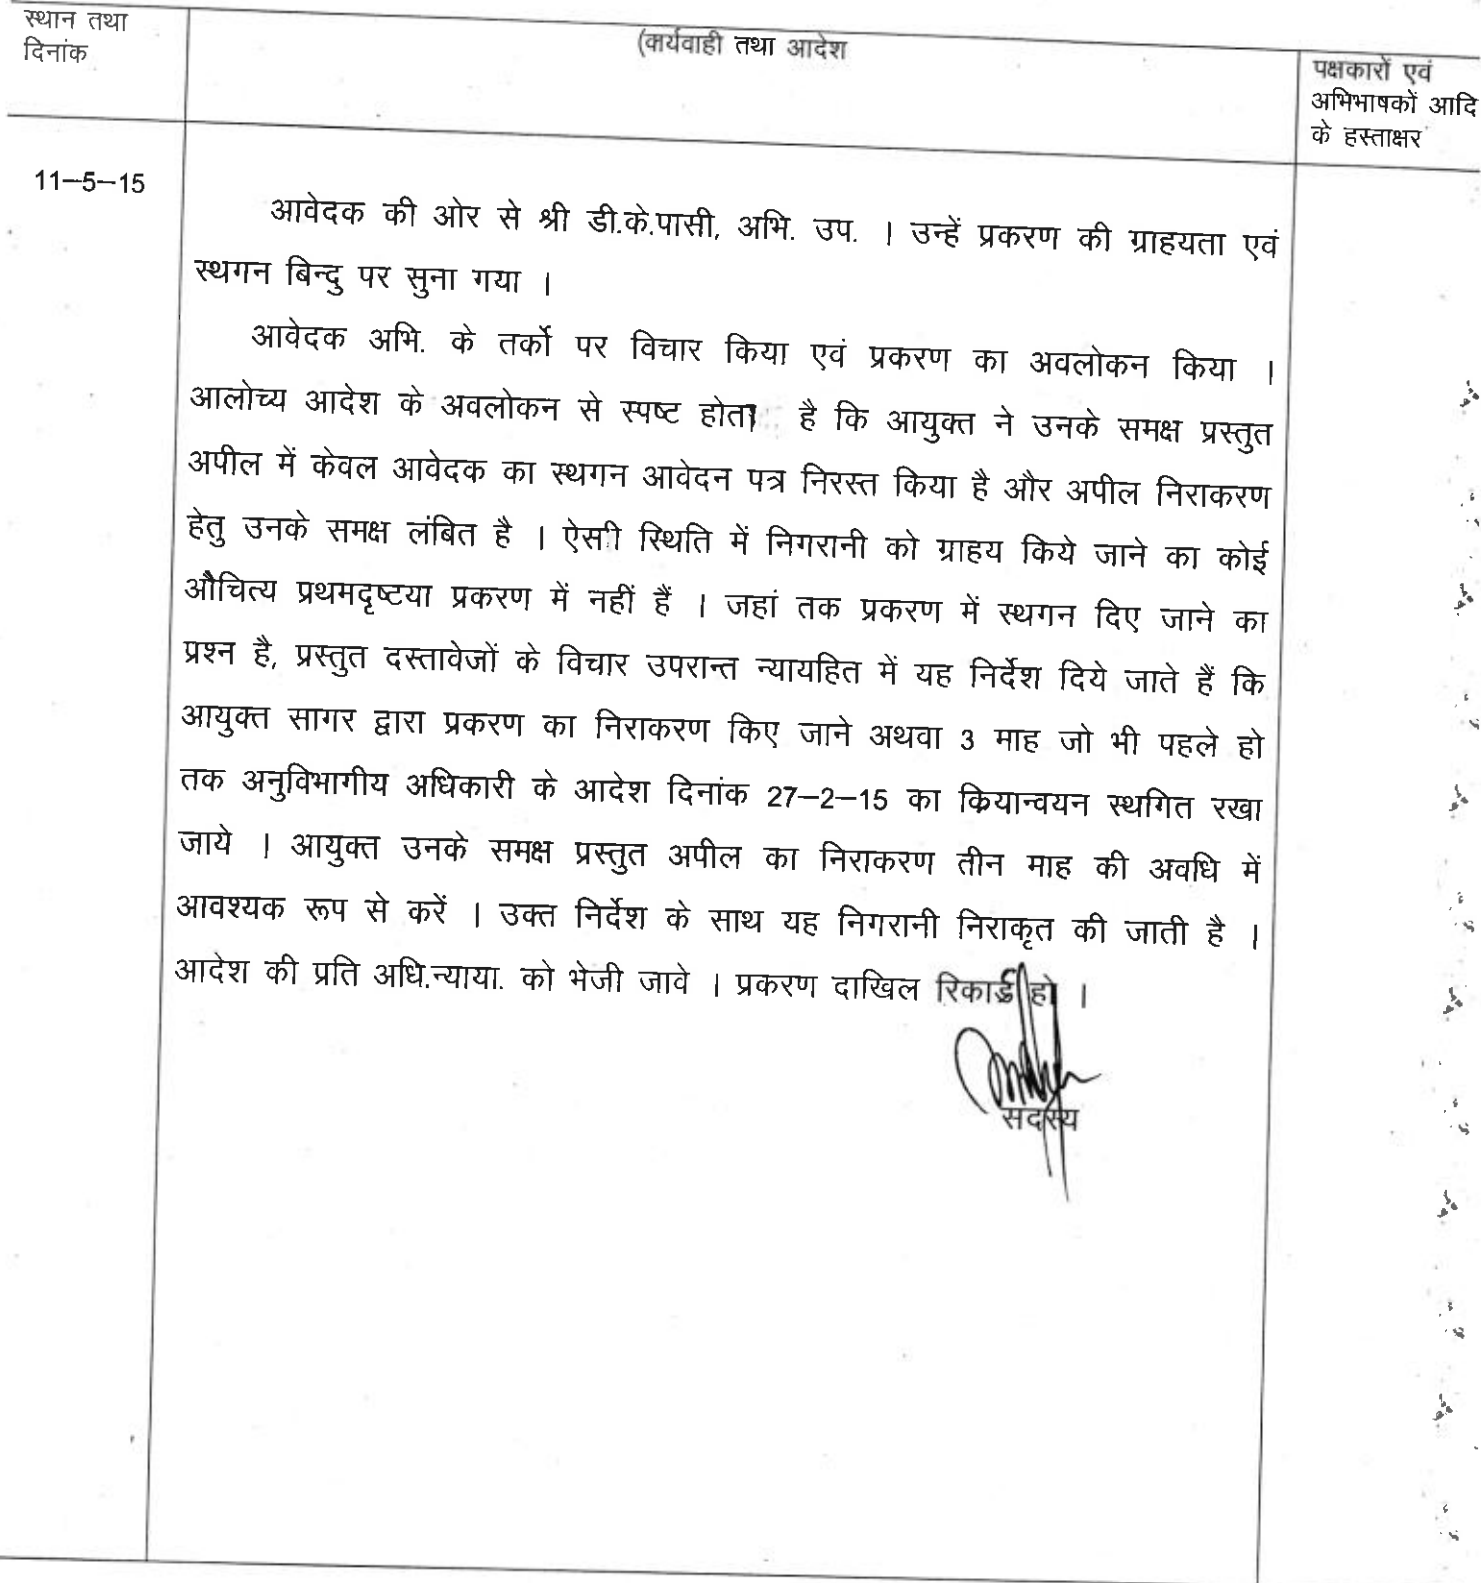 स्थान तथा
दिनांक
(कार्यवाही तथा आदेश
पक्षकारों एवं
अभिभाषकों आदि
के हस्ताक्षर
11–5–15
आवेदक की ओर से श्री डी.के.पासी, अभि. उप. । उन्हें प्रकरण की ग्राहयता एवं
स्थगन बिन्दु पर सुना गया ।
आवेदक अभि. के तर्को पर विचार किया एवं प्रकरण का अवलोकन किया ।
आलोच्य आदेश के अवलोकन से स्पष्ट होता है कि आयुक्त ने उनके समक्ष प्रस्तुत
अपील में केवल आवेदक का स्थगन आवेदन पत्र निरस्त किया है और अपील निराकरण
हेतु उनके समक्ष लंबित है । ऐसी स्थिति में निगरानी को ग्राहय किये जाने का कोई
औचित्य प्रथमदृष्टया प्रकरण में नहीं हैं । जहां तक प्रकरण में स्थगन दिए जाने का
प्रश्न है, प्रस्तुत दस्तावेजों के विचार उपरान्त न्यायहित में यह निर्देश दिये जाते हैं कि
आयुक्त सागर द्वारा प्रकरण का निराकरण किए जाने अथवा 3 माह जो भी पहले हो
तक अनुविभागीय अधिकारी के आदेश दिनांक 27–2–15 का कियान्वयन स्थगित रखा
जाये । आयुक्त उनके समक्ष प्रस्तुत अपील का निराकरण तीन माह की अवधि में
आवश्यक रूप से करें । उक्त निर्देश के साथ यह निगरानी निराकृत की जाती है ।
आदेश की प्रति अधि.न्याया. को भेजी जावे । प्रकरण दाखिल रिकार्ड हो ।
सदस्य